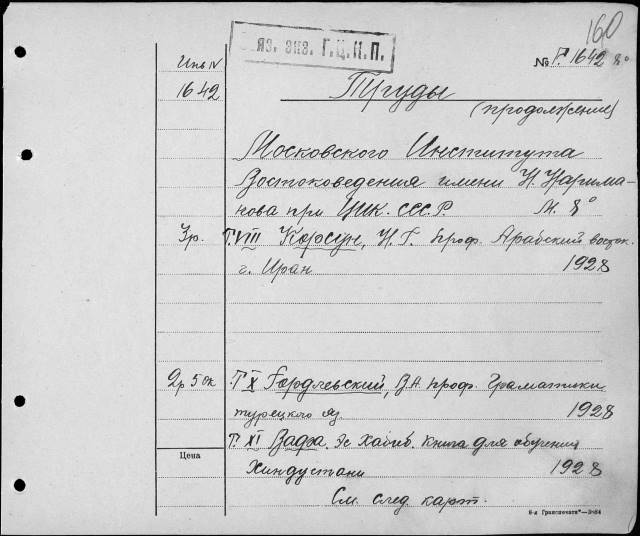 160
яз. экз. Г.Ц.К.П.
Инв IV
№ Г. 1642 8°
1642
Труды
(продолжение)
Московского Института
Востоковедения имени Н. Нарима-
нова при ЦИК. СССР. М. 8°
3р. Т. VIII Корсун, Н. Г. проф. Арабский восток.
г. Иран 1928
2р 50к Т X Гордлевский, ВА. проф. Граматики
турецкого яз 1928
Т. XI Вафа, Эс Хабиб. Книга для обучения
Цена
Хиндустани 1928
См. след. карт.